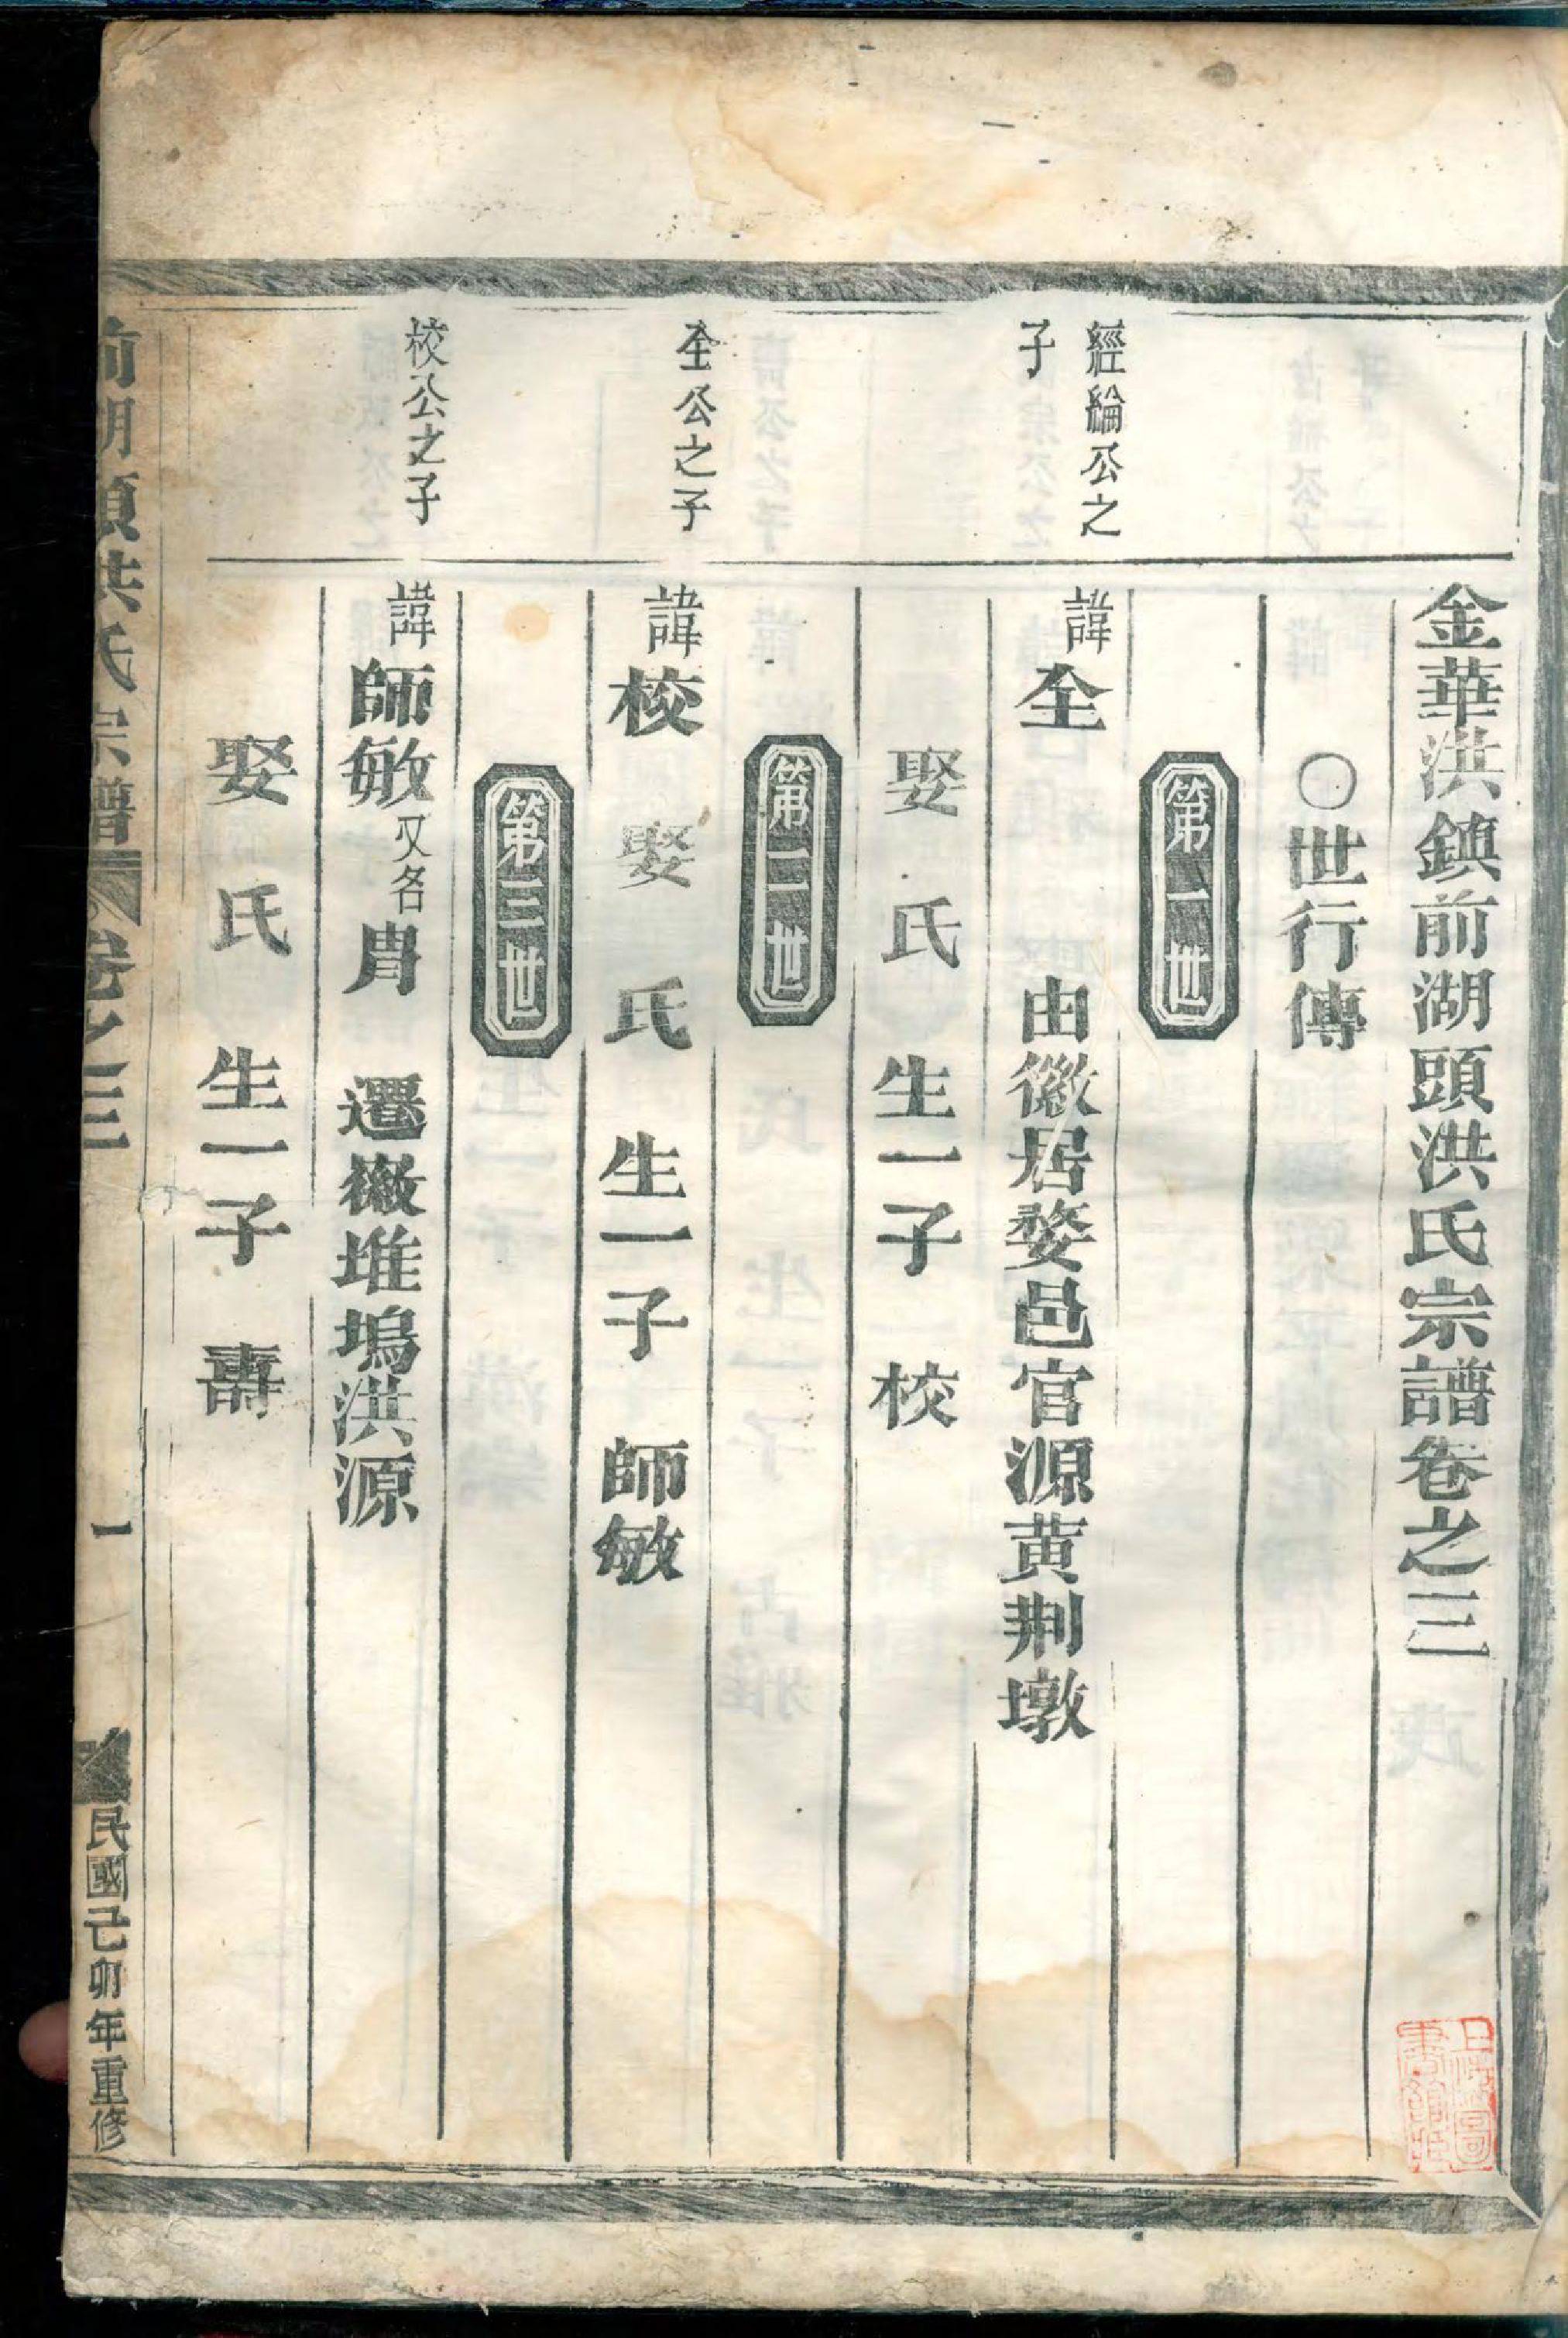 金華洪鎮前湖頭洪氏宗譜卷之三
〇世行傳
第一世
經綸公之
子
諱全 由徽居婺邑官源黄荆墩
娶 氏 生一子 校
第二世
全公之子
諱校 娶 氏 生一子 師敏
第三世
校公之子
諱師敏又名胄 遷徽堆塢洪源
娶 氏 生一子 壽
前湖頭洪氏宗譜 卷之三 一 民國己卯年重修